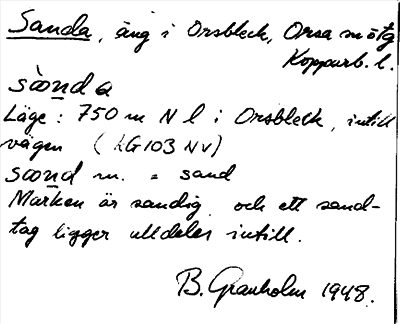 Sanda, äng i Orsbleck, Orsa sn ötg
Kopparb. l.
sànda
Läge: 750 m N l i Orsbleck, intill
vägen (LG103 NV)
sand m. = sand
Marken är sandig och ett sand-
tag ligger alldeles intill.
B. Granholm 1948.